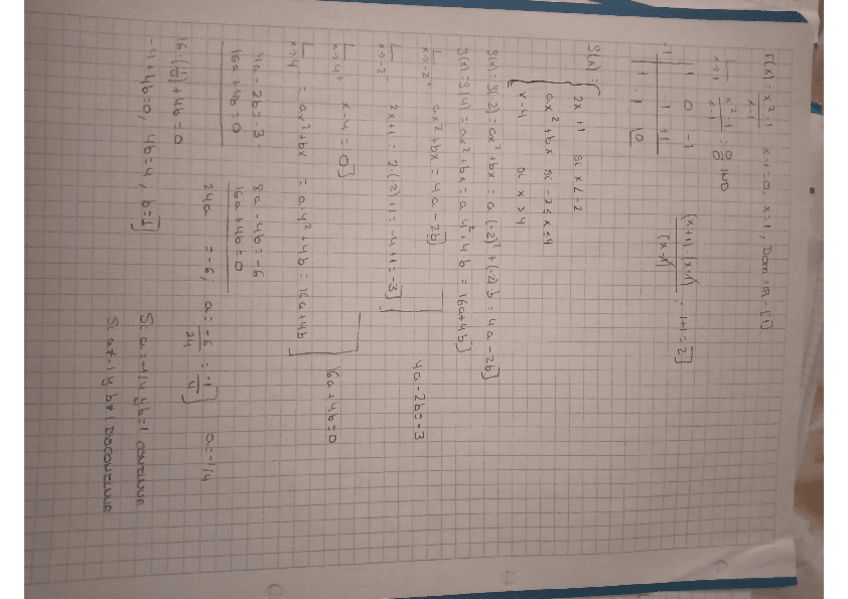 f(x) = x²-1 / x-1   x-1=0, x=1, Dom = IR - {1}
L x→1 x²-1 / x-1 = 0/0 IND
1 0 -1
1 | 1 +1
1 1 |0
(x+1)·(x-1) / (x-1) = 1+1 = 2]
g(x) = { 2x+1 si x<-2
ax²+bx si -2≤x≤4
x-4 si x>4
g(x) = g(-2) = ax²+bx = a(-2)²+(-2)b = 4a-2b]
g(x) = g(4) = ax²+bx = a·4²+4b = 16a+4b]
L x→-2⁺ ax²+bx = 4a-2b]
L x→-2⁻ 2x+1 = 2·(-2)+1 = -4+1 = -3]
4a-2b=-3
L x→4⁺ x-4 = 0]
L x→4⁻ = ax²+bx = a·4²+4b = 16a+4b]
16a+4b=0
4a-2b=-3
16a+4b=0
8a-4b=-6
16a+4b=0
24a = -6, a = -6/24 = -1/4] a=-1/4
16·(-1/4)+4b=0
-4+4b=0, 4b=4, b=1]
Si a=-1/4 y b=1 continua
Si a≠-1/4 y b≠1 Discontinua